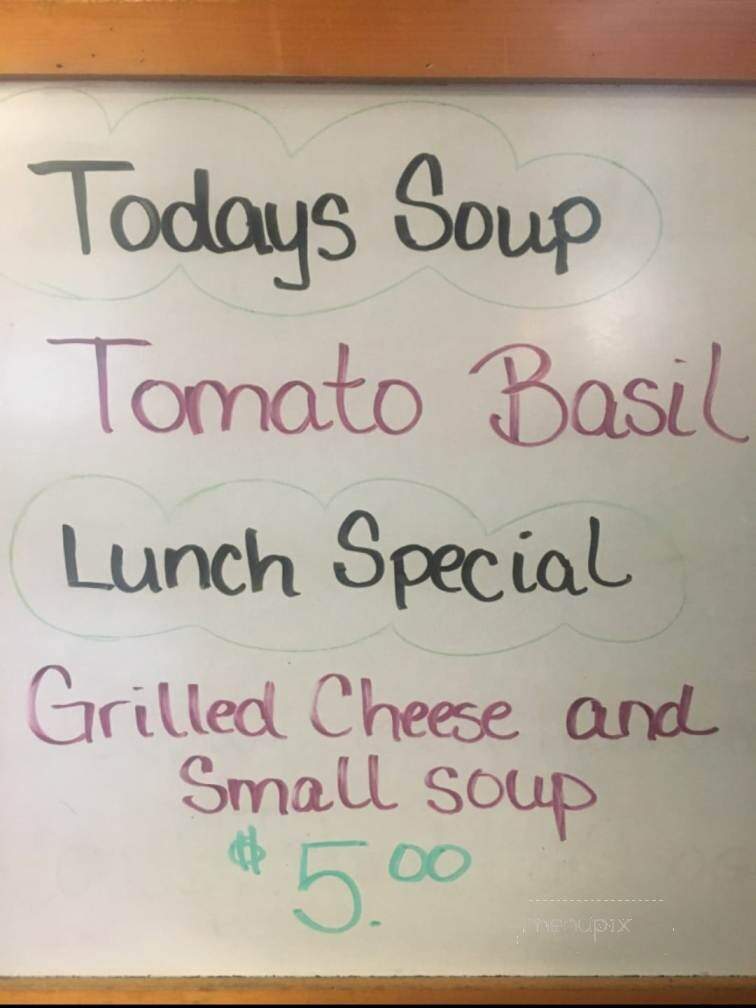 Todays Soup
Tomato Basil
Lunch Special
Grilled Cheese and
Small soup
$5.00
menupix